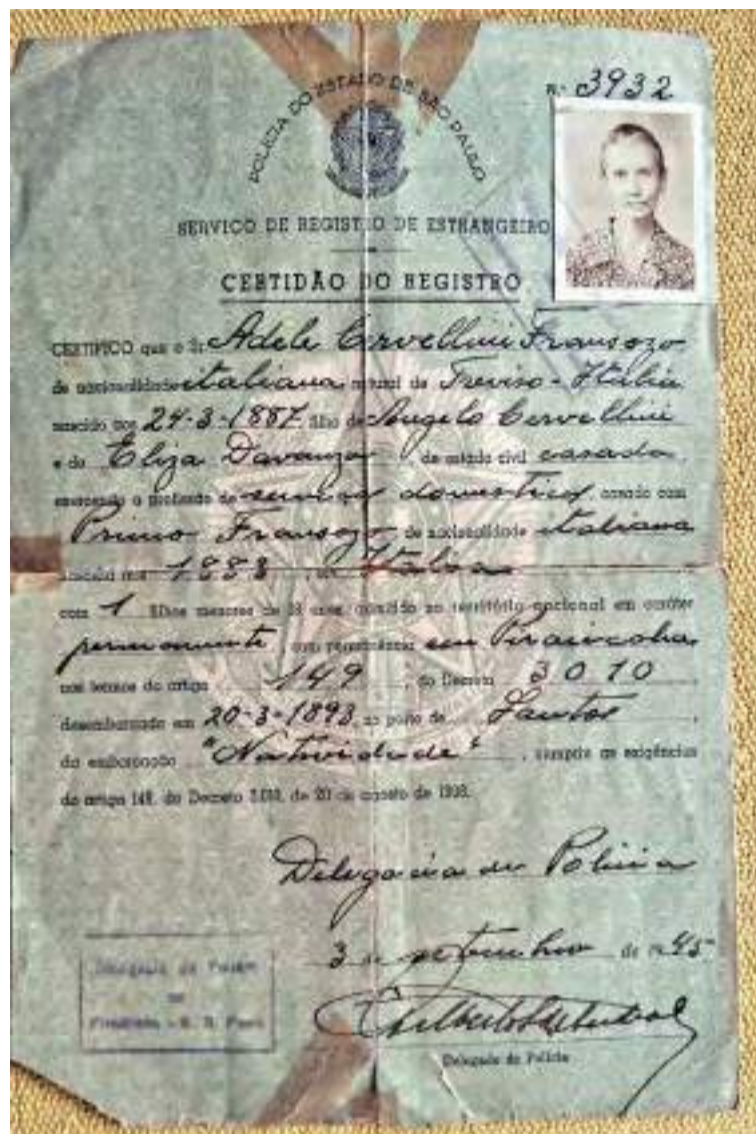 POLICIA DO ESTADO DE SÃO PAULO
N.º 3932
SERVIÇO DE REGISTRO DE ESTRANGEIRO
CERTIDÃO DO REGISTRO
CERTIFICO que o Sr. Adele Cervellini Fransozo
de nacionalidade italiana natural de Treviso - Italia
nascido aos 24-3-1887 filho de Angelo Cervellini
e de Eliza Davanzo, de estado civil casada,
exercendo a profissão de serviços domesticos, casado com
Primo Fransozo, de nacionalidade italiana
nascido aos 1883, em Italia
com 1 filhos menores de 18 anos, admitido ao território nacional em caráter
permanente, com permanência em Piracicaba
nos termos do artigo 149, do Decreto 3010
desembarcado em 20-3-1893, ao porto de Santos,
da embarcação "Natividade", cumpriu as exigências
do artigo 149, do Decreto 3.010, de 20 de agosto de 1938.
Delegacia de Policia
3 de setembro de 1945
Delegado de Polícia
Delegacia de Policia